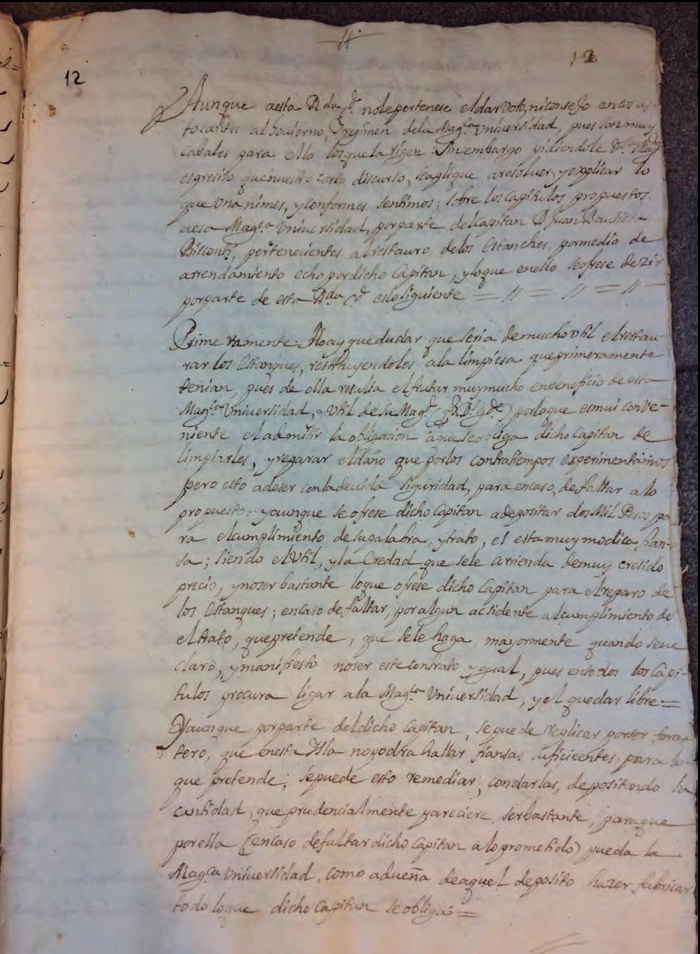 12
12
Aunque aesta Rda Cd. nole pertenese eldar Voto, ni consejo encos
tocantes al Govierno, y regimen dela Magca Universidad, pues son muy
cabales para ello los que la rigen: Sin embargo pidiendole Va. Magd
espresito que nuestro corto discurso, se aplique aresolver, y explicar lo
que Unanimes, y conformes sentimos, sobre los Capitulos, propuestos
aesa Magca Universidad, porparte del Capitan Dn Juan Bautista
Bisconti, pertenecientes al restauro delos Estanches, pormedio de
arrendamiento echo por dicho Capitan, y loque enello se ofrese dezir
porparte de esta Rda Cd. es lo siguiente = // = // = // =
Primeramente Noay que dudar que seria de mucho Vtil el restau-
rar los Estanques, restituyendoles ala limpiesa que primeramente
tenian, pues de ella resulta el frutar muy mucho en beneficio de esta
Magca Universidad, o Vtil de Su Magd (q. D. gde) por loque es mui conve-
niente el admitir la obligacion aque se obliga dicho Capitan de
limpiarles, y reparar el daño que por los contratiempos experimentamos
pero esto a de ser con la devida siguridad, para en caso, de faltar a lo
propuesto: y aunque se ofrese dicho Capitan adepositar dos Mil Pesos pa-
ra el cumplimiento de su palabra, y trato, es esta muy modica fian-
sa; siendo el Vtil, y la Eredad que sele arrienda de muy cresido
precio, y no ser bastante loque ofrese dicho Capitan para el reparo de
los Estanques; en caso de faltar, por algun accidente al cumplimiento de
el trato, que pretende, que sele haga, mayormente quando se ve
claro, y manifiesto no ser este contrato ygual, pues entodos los Capi-
tulos procura ligar ala Magca Universidad, y el quedar libre =
Y aunque porparte del dicho Capitan, se puede replicar por ser foras-
tero, que en esta Isla no podra hallar fiansas suficientes, para lo
que pretende; se puede esto remediar, con darlas, depositando la
cantidad, que prudencialmente pareciere, ser bastante, paraque
por ella (en caso de faltar dicho Capitan alo prometido) pueda la
Magca Universidad, como a dueña de aquel deposito hazer fabricar
todo loque dicho Capitan se obliga =